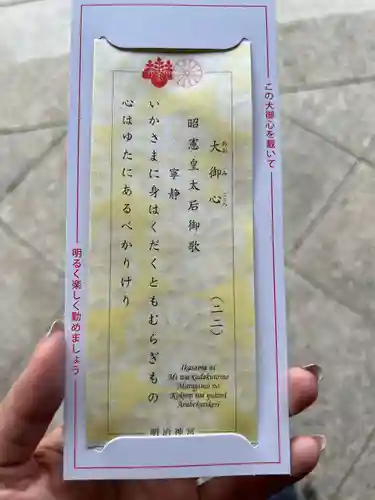 この大御心を戴いて
大御心
おおみこころ
(二二)
昭憲皇太后御歌
寧静
いかさまに身はくだくともむらぎもの
心はゆたにあるべかりけり
Ikasama ni
Mi wa kudakutomo
Muragimo no
Kokoro wa yutani
Arubekarikeri
明治神宮
明るく楽しく勤めましょう